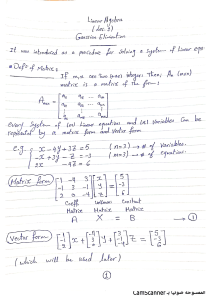 Linear Algebra
(Lec. 3)
Gaussian Elimination
It was introduced as a procedure for solving a system of linear equa-
* Defn of Matrix:
If m,n are two (non) integers then, Am (mxn)
matrix is a matrix of the form:
Every System of (m) Linear equations and (n) Variables Can be
represented by a matrix form and Vector form.
e.g. x - 4y + 3z = 5 (n=3) → # of Variables.
-x + 3y - z = -3 (m=3) → # of equations.
2x - 4z = 6
Matrix form [1 -4 3] [x] [5]
[-1 3 -1] [y] = [-3]
[2 0 -4] [z] [6]
Coeff Unknown Constant
Matrix Matrix Matrix
A X = B → ①
Vector form
(which will be used later)
①
CamScanner الممسوحة ضوئيا بـ